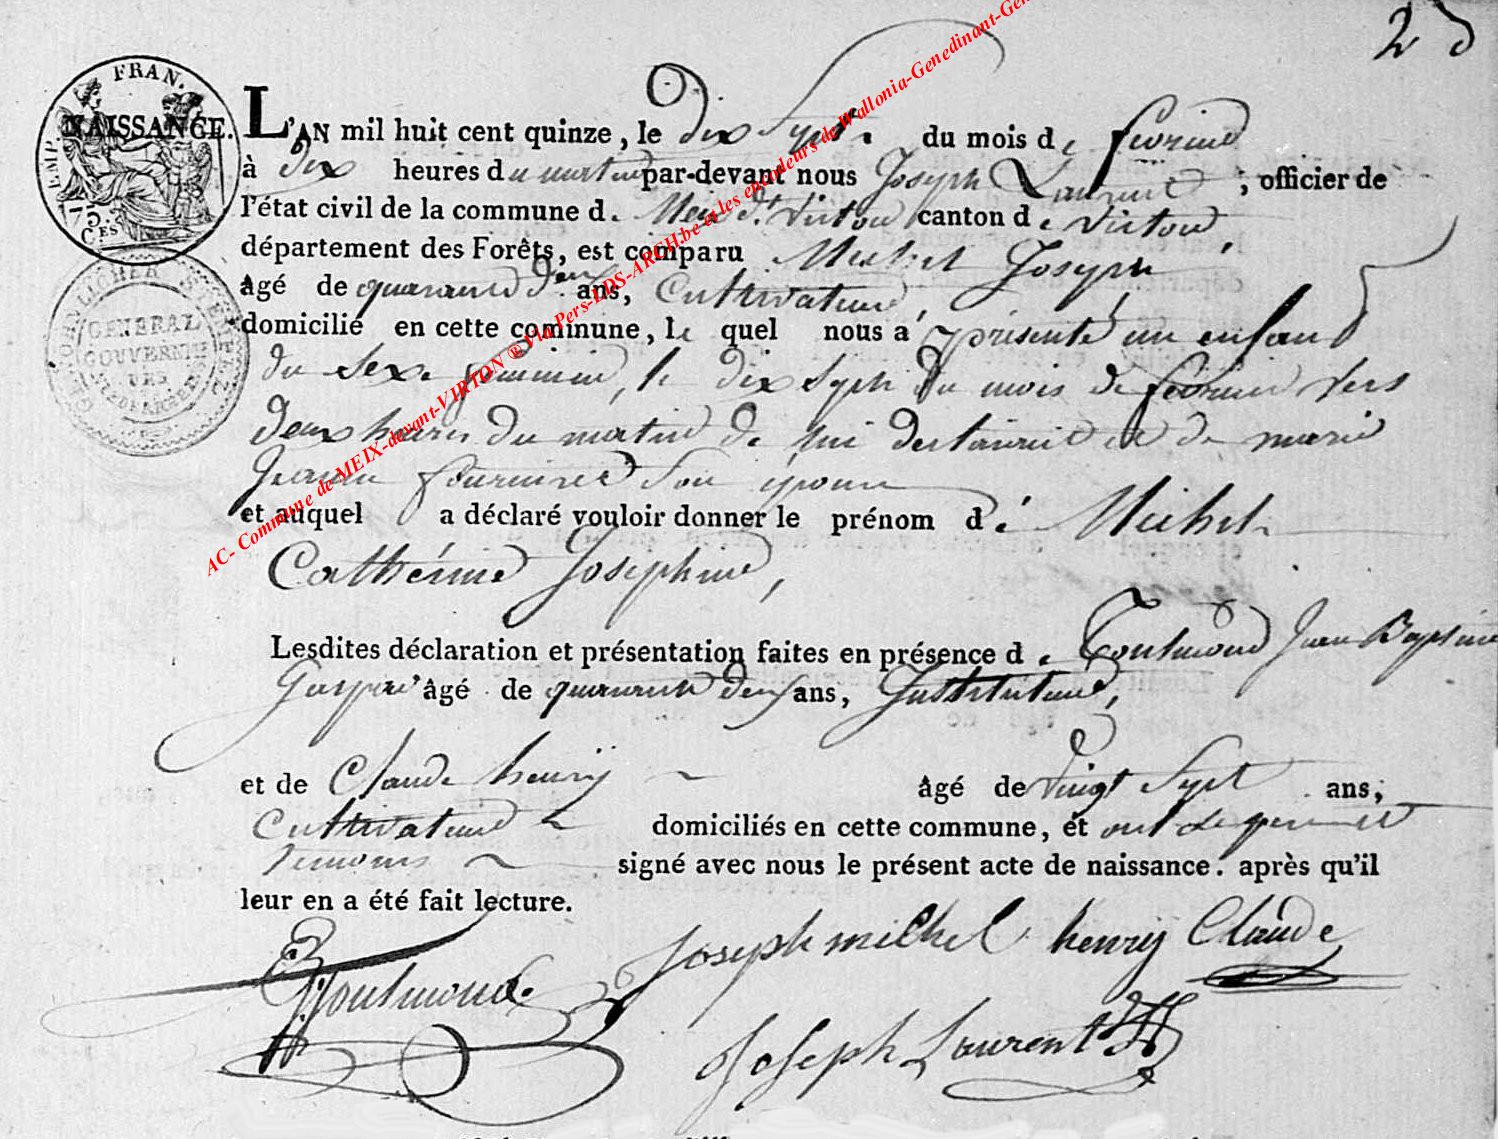 2
FRAN.
EMP.
15 Ces
NAISSANCE.
GÉNÉRAL
GOUVERNEMT
L'AN mil huit cent quinze, le dix Sept. du mois de fevrier
à dix heures du matin par-devant nous Joseph Laurent, officier de
l'état civil de la commune de Meix dt Virton canton de Virton,
département des Forêts, est comparu Michel Joseph
âgé de quarante deux ans, Cultivateur,
domicilié en cette commune, le quel nous a présenté un enfant
du sexe feminin, le dix Sept du mois de fevrier vers
deux heures du matin de lui declarant et de marie
fourniret son épouse
et auquel a déclaré vouloir donner le prénom de Michel
Cathérine Josephine,
Lesdites déclaration et présentation faites en présence de Toutmond Jean Baptiste
âgé de quarante deux ans, Instituteur,
et de Claude henrij âgé de vingt Sept ans,
Cultivateur domiciliés en cette commune, et ont
temoins signé avec nous le présent acte de naissance. après qu'il
leur en a été fait lecture.
Toutmond. Joseph michel henrij Claude
Joseph Laurent
AC- Commune de MEIX-devant-VIRTON ® Via Pers-LDS-ARCH.be et les encodeurs de Wallonia-Genedinant-Gen